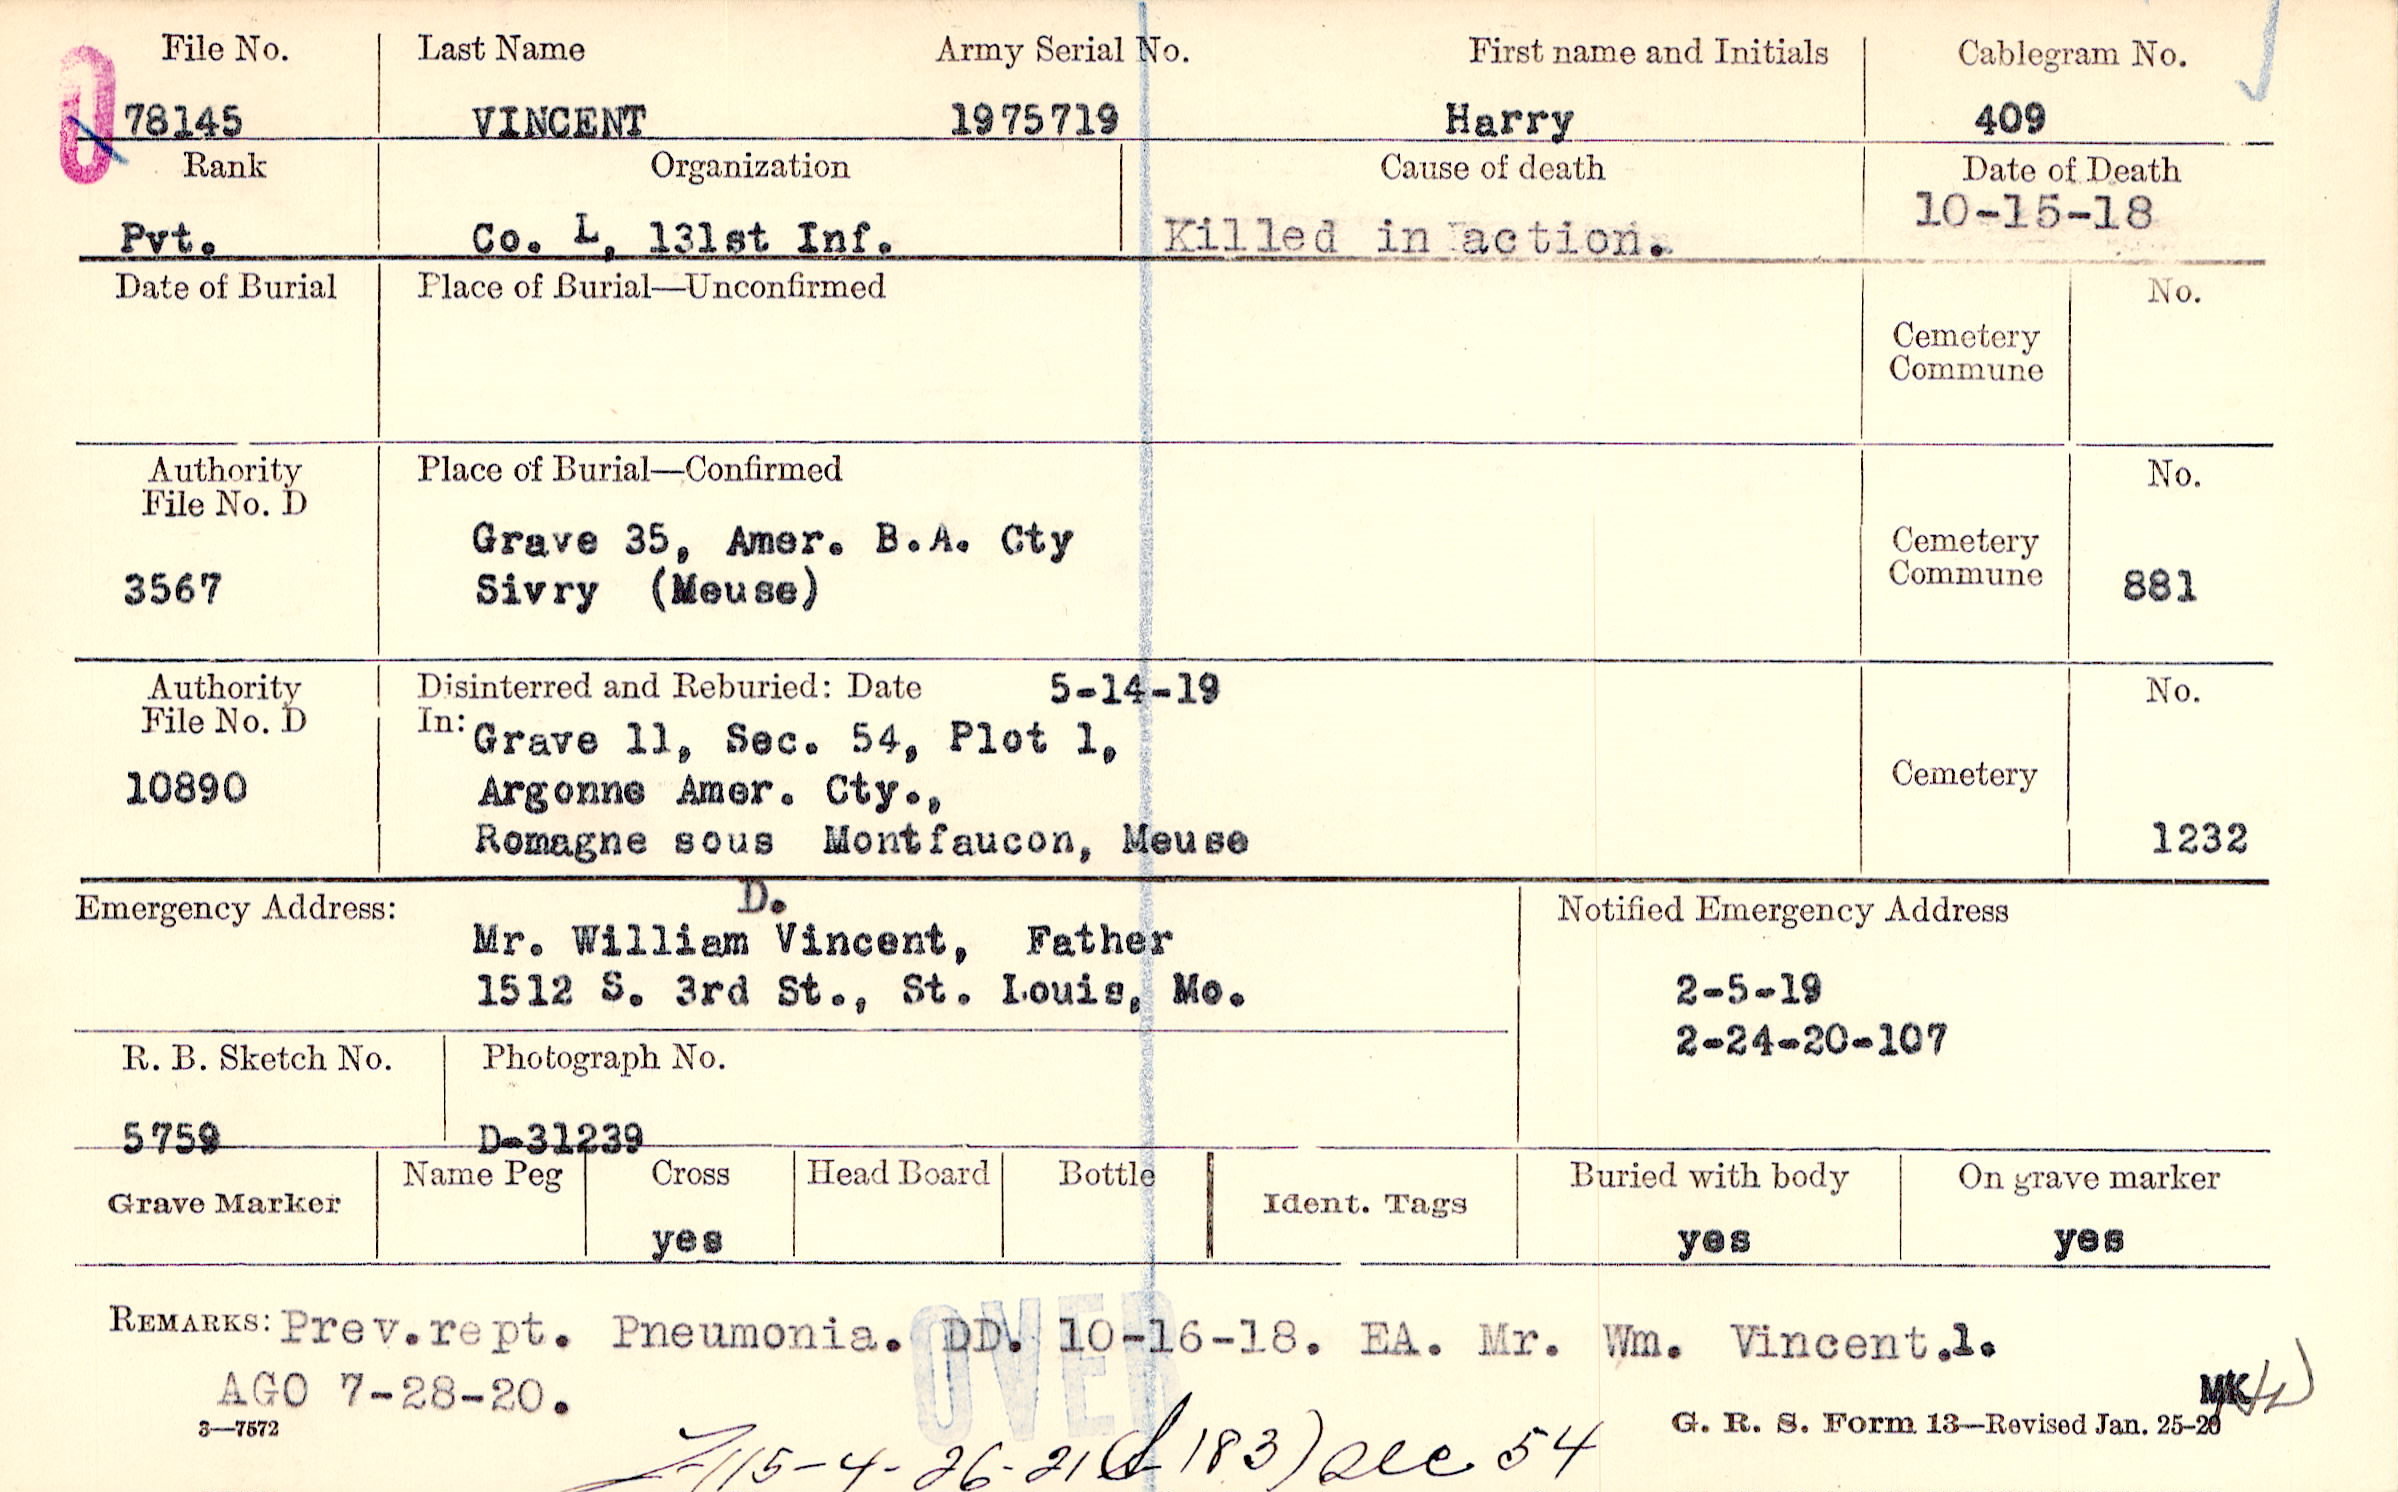 File No. Last Name Army Serial No. First name and Initials Cablegram No.
78145 VINCENT 1975719 Harry 409
Rank Organization Cause of death Date of Death
Pvt. Co. L, 131st Inf. Killed in action. 10-15-18
Date of Burial Place of Burial—Unconfirmed No.
Cemetery
Commune
Authority Place of Burial—Confirmed No.
File No. D
Grave 35, Amer. B.A. Cty Cemetery
3567 Sivry (Meuse) Commune 881
Authority Disinterred and Reburied: Date 5-14-19 No.
File No. D In: Grave 11, Sec. 54, Plot 1,
10890 Argonne Amer. Cty., Cemetery
Romagne sous Montfaucon, Meuse 1232
Emergency Address: D. Notified Emergency Address
Mr. William Vincent, Father
1512 S. 3rd St., St. Louis, Mo. 2-5-19
2-24-20-107
R. B. Sketch No. Photograph No.
5759 D-31239
Grave Marker Name Peg Cross Head Board Bottle Ident. Tags Buried with body On grave marker
yes yes yes
REMARKS: Prev.rept. Pneumonia. DD. 10-16-18. EA. Mr. Wm. Vincent.1.
AGO 7-28-20.
OVER
MK
3—7572 G. R. S. Form 13—Revised Jan. 25-20
115-4-26-21 183) Sec 54